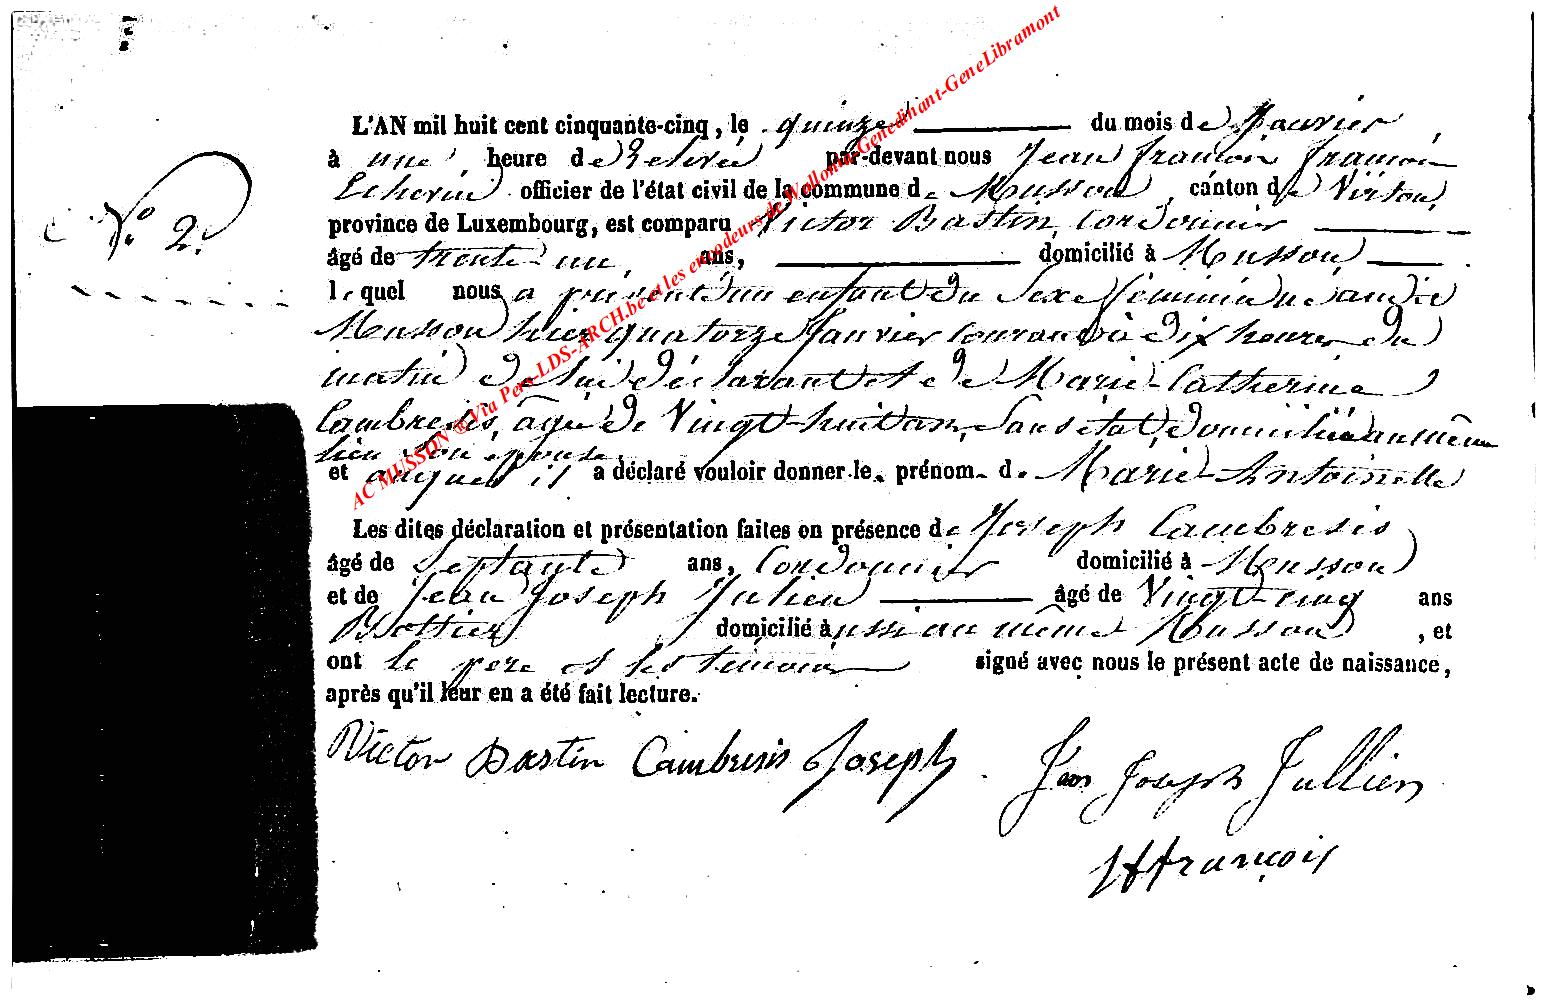 N.° 2.
L'AN mil huit cent cinquante-cinq, le quinze du mois de Janvier,
à une heure de relevée par-devant nous Jean François François
Echevin officier de l'état civil de la commune de Musson, canton de Virton,
province de Luxembourg, est comparu Victor Bastin, Cordonnier
âgé de trente-un, ans, domicilié à Musson
lequel nous a présenté un enfant du Sexe féminin né audit
Musson hier quatorze Janvier courant à dix heures du
matin de lui déclarant et de Marie-Catherine
Cambresis, âgée de Vingt-huit ans, Sans état, domiciliée au même
lieu son épouse
et auquel il a déclaré vouloir donner le prénom de Marie-Antoinette
Les dites déclaration et présentation faites en présence de Joseph Cambresis
âgé de Septante ans, Cordonnier domicilié à Musson
et de Jean Joseph Julien âgé de Vingt-cinq ans
Bottier domicilié aussi au même Musson, et
ont le père et les témoins signé avec nous le présent acte de naissance,
après qu'il leur en a été fait lecture.
Victor Bastin Cambresis Joseph Jean Joseph Jullien
JFfrançois
AC MUSSON ® Via Pero-LDS-ARCH.be et les encodeurs de Wallonia-Genedinant-GeneLibramont